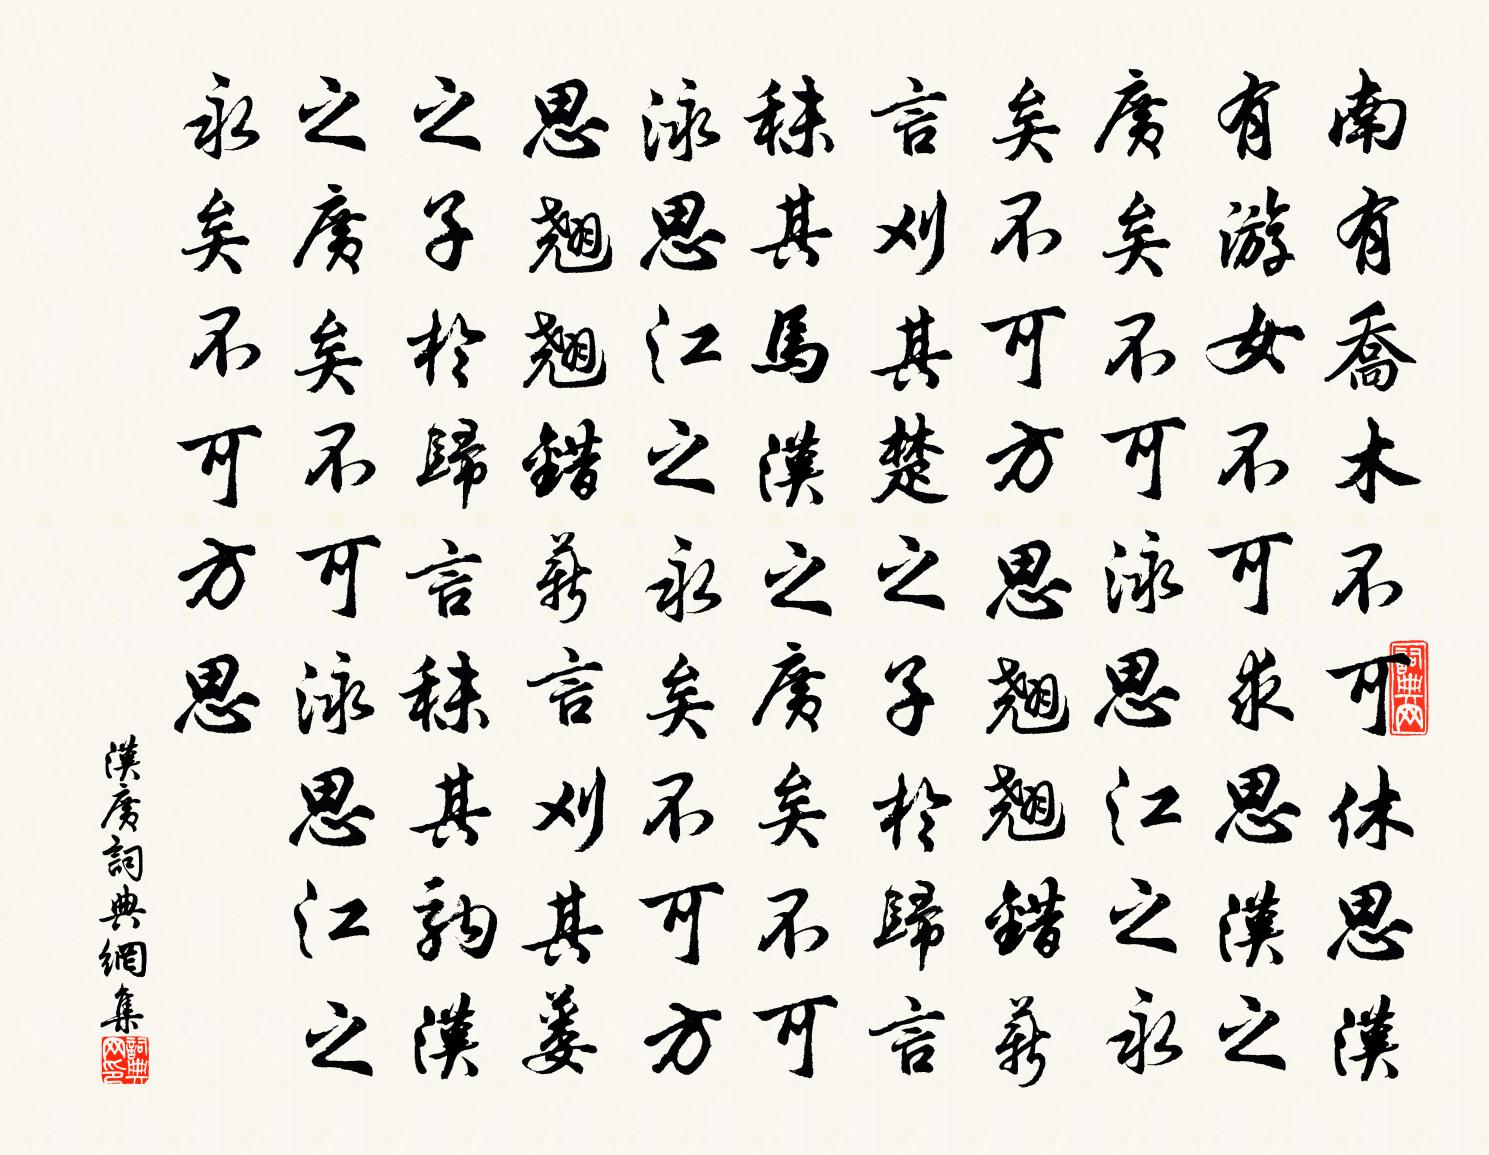 南有喬木不可休思漢
有游女不可求思漢之
廣矣不可泳思江之永
矣不可方思翹翹錯薪
言刈其楚之子於歸言
秣其馬漢之廣矣不可
泳思江之永矣不可方
思翹翹錯薪言刈其蔞
之子於歸言秣其駒漢
之廣矣不可泳思江之
永矣不可方思
漢廣詞典網集
詞典网
詞典网印